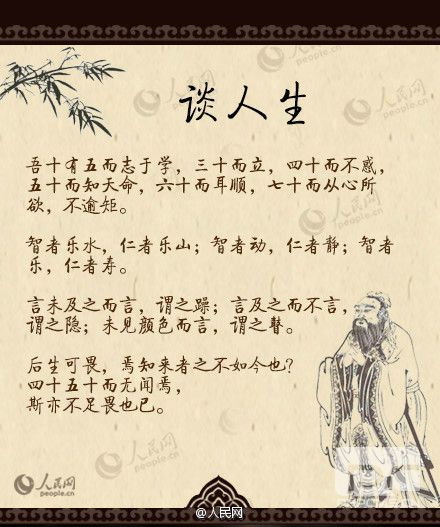 人民网
people.cn
人民网
people.cn
谈人生
吾十有五而志于学，三十而立，四十而不惑，
五十而知天命，六十而耳顺，七十而从心所
欲，不逾矩。
智者乐水，仁者乐山；智者动，仁者静；智者
乐，仁者寿。
言未及之而言，谓之躁；言及之而不言，
谓之隐；未见颜色而言，谓之瞽。
后生可畏，焉知来者之不如今也？
四十五十而无闻焉，
斯亦不足畏也已。
人民网
people.cn
人民网
people.cn
@人民网